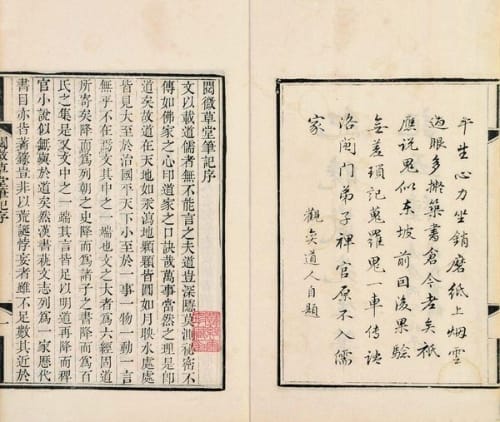 平生心力坐銷磨紙上烟雲
過眼多擬築書倉今老矣祇
應説鬼似東坡前因後果驗
無差瑣記蒐羅鬼一車傳語
洛閩門弟子稗官原不入儒
家
觀奕道人自題
閱微草堂筆記序
文以載道儒者無不能言之夫道豈深隱莫測秘密不
傳如佛家之心印道家之口訣哉萬事當然之理是即
道矣故道在天地如汞瀉地顆顆皆圓如月映水處處
皆見大至於治國平天下小至於一事一物一動一言
無乎不在焉文其中之一端也文之大者為六經固道
所寄矣降而為列朝之史降而為諸子之書降而為百
氏之集是又文中之一端其言皆足以明道再降而稗
官小說似無與於道矣然漢書藝文志列為一家歷代
書目亦皆著錄豈非以荒誕悖妄者雖不足數其近於
閱微草堂筆記序
一